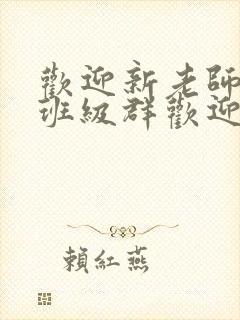 歡迎新老師
班級群歡迎
賴紅燕